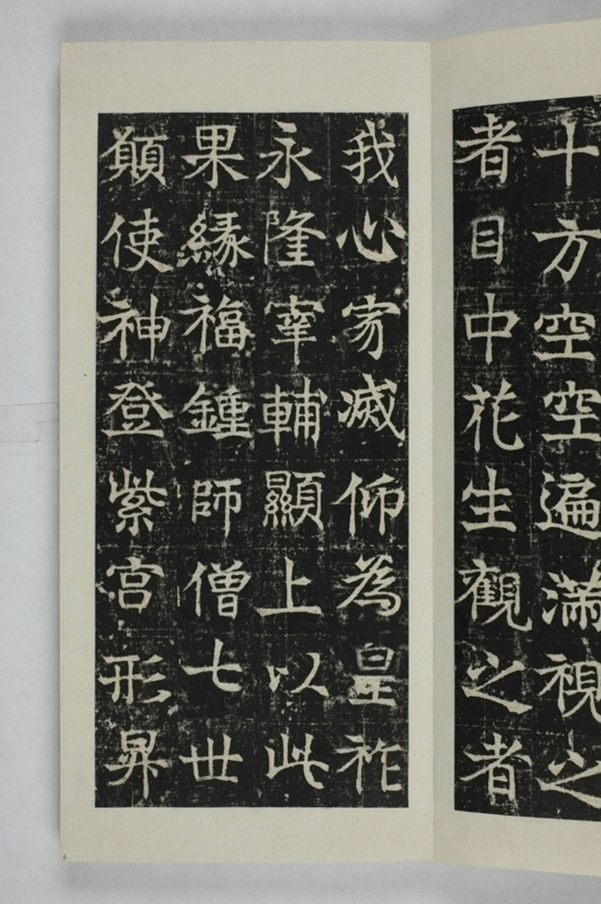 十方空空遍滿視之
者目中花生觀之者
我心寂滅仰為皇祚
永隆宰輔顯上以此
果緣福鍾師僧七世
願使神登紫宮形昇